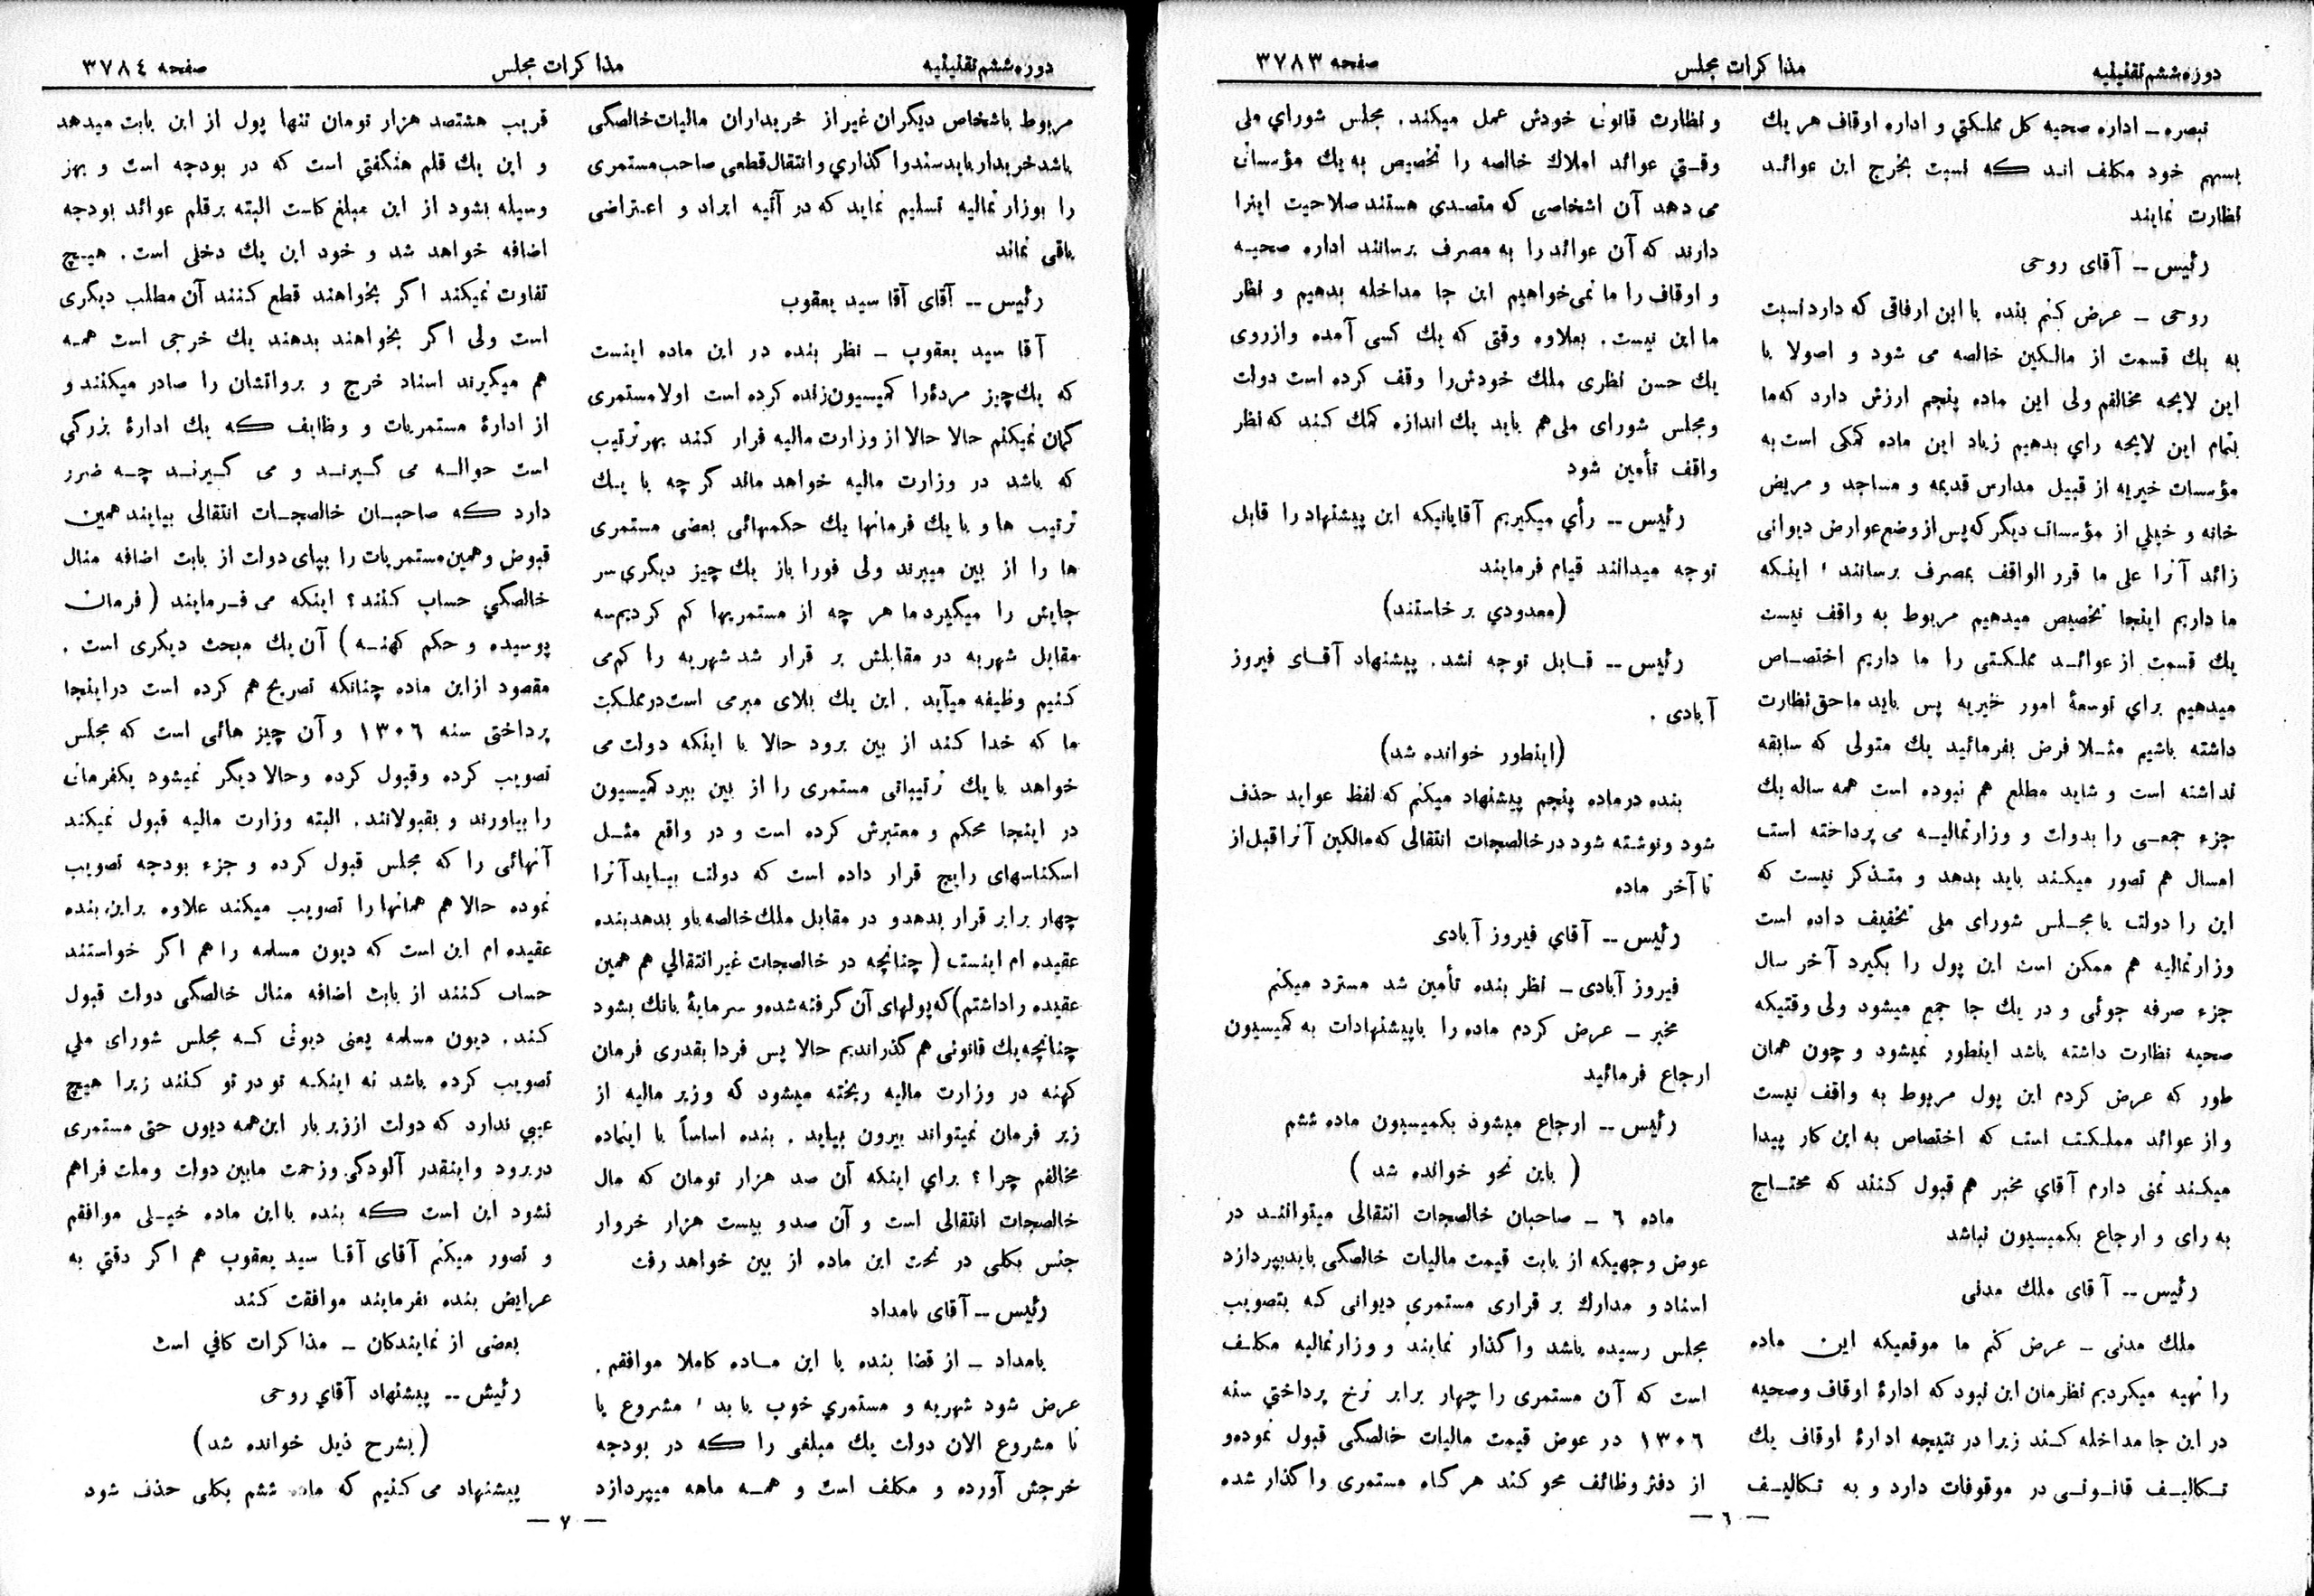 دوره ششم تقنینیه
مذاکرات مجلس
صفحه ۳۷۸۳
تبصره ـ اداره صحیه کل مملکتي و اداره اوقاف هر یك
بسهم خود مکلف انـد که نسبت بخرج این عوائـد
نظارت نمایند
رئیس ــ آقای روحی
روحی ـ عرض کنم بنده با این ارفاقی که دارد نسبت
به یك قسمت از مالکین خالصه می شود و اصولا با
این لایحه مخالفم ولی این ماده پنجم ارزش دارد که ما
بتمام این لایحه راي بدهیم زیاد این ماده کمکی است به
مؤسسات خیریه از قبیل مدارس قدیمه و مساجد و مریض
خانه و خیلي از مؤسسات دیگر که پس از وضع عوارض دیوانی
زائد آنرا علی ما قرر الواقف بمصرف برسانند ، اینـکه
ما داریم اینجا تخصیص میدهیم مربوط به واقف نیست
یك قسمت از عوائـد مملکـتی را ما داریم اختصـاص
میدهیم براي توسعهٔ امور خیریه پس باید ما حق نظارت
داشته باشیم مثـلا فرض بفرمائید یك متولی که سابقه
نداشته است و شاید مطلع هم نبوده است همه ساله یك
جزء جمعـی را بدولت و وزارتمالیـه می پرداخته است
امسال هم تصور میکـند باید بدهد و متـذکر نیست که
این را دولت یا مجـلس شورای ملی تخفیف داده است
وزارتمالیه هم ممکن است این پول را بگیرد آخر سال
جزء صرفه جوئی و در یك جا جمع میشود ولی وقتیکه
صحیه نظارت داشته باشد اینطور نمیشود و چون همان
طور که عرض کردم این پول مربوط به واقف نیست
و از عوائد مملـکـت است که اختصاص به این کار پیدا
میکـند تمنی دارم آقاي مخبر هم قبول کـنند که محتـاج
به رای و ارجاع بکمیسیون نباشد
رئیس ــ آقای ملك مدنی
ملك مدنی ـ عرض کنم ما موقعیکه این ماده
را تهیه میکردیم نظرمان این نبود که ادارهٔ اوقاف و صحیه
در این جا مداخله کـند زیرا در نتیجه ادارهٔ اوقاف یك
تـکالیـف قانـونـی در موقوفات دارد و به تکالیـف
و نظارت قانونی خودش عمل میکند . مجلس شوراي ملی
وقـتي عوائد املاك خالصه را تخصیص به یك مؤسساتی
می دهد آن اشخاصی که متصـدی هستند صلاحیت اینرا
دارند که آن عوائد را به مصرف برسانند اداره صحیـه
و اوقاف را ما نمی خواهیم این جا مداخله بدهیم و نظر
ما این نیست . بعلاوه وقتی که یك کسی آمده و از روی
یك حسن نظری ملك خودش را وقف کرده است دولت
و مجلس شورای ملی هم باید یك اندازه کمك کند که نظر
واقف تأمین شود
رئیس ــ رأي میگیریم آقایانیکه این پیشنهاد را قابل
توجه میدانند قیام فرمایند
(معدودي بر خاستند)
رئیس ــ قـابل توجه نشد . پیشنهاد آقـای فیروز
آبادی .
(اینطور خوانده شد)
بنده در ماده پنجم پیشنهاد میکنم که لفظ عواید حذف
شود و نوشته شود در خالصجات انتقالی که مالکین آنرا قبل از
تا آخر ماده
رئیس ــ آقاي فیروز آبادی
فیروز آبادی ـ نظر بنده تأمین شد مسترد میکنم
مخبر ـ عرض کردم ماده را با پیشنهادات به کمیسیون
ارجاع فرمائید
رئیس ــ ارجاع میشود بکمیسیون ماده ششم
( باین نحو خوانده شد )
ماده ٦ ـ صاحبان خالصجات انتقالی میتواننـد در
عوض وجهیکه از بابت قیمت مالیات خالصگی باید بپردازد
اسناد و مدارك بر قراری مستمري دیوانی که بتصویب
مجلس رسیده باشد واگذار نمایند و وزارتمالیه مکلـف
است که آن مستمری را چهار برابر نرخ پرداختي سنه
۱۳۰٦ در عوض قیمت مالیات خالصگی قبول نموده و
از دفتر وظائف محو کند هر گاه مستمری واگذار شده
— ٦ —
دوره ششم تقنینیه
مذاکرات مجلس
صفحه ۳۷۸٤
مربوط باشخاص دیگران غیر از خریداران مالیات خالصگی
باشد خریدار باید سند واگذاري و انتقال قطعی صاحب مستمری
را بوزارتمالیه تسلیم نماید که در آتیه ایراد و اعتراضی
باقی نماند
رئیس ــ آقای آقا سید یعقوب
آقا سید یعقوب ـ نظر بنده در این ماده اینست
که یك چیز مردهٔ را کمیسیون زنده کرده است اولا مستمری
گمان نمیکنم حالا حالا از وزارت مالیه فرار کند بهر ترتیب
که باشد در وزارت مالیه خواهد ماند گر چه با یـك
ترتیب ها و با یك فرمانها یك حکمهائی بعضی مستمری
ها را از بین میبرند ولی فورا باز یك چیز دیگری سر
جایش را میگیرد ما هر چه از مستمریها کم کردیم سه
مقابل شهریه در مقابلش بر قرار شد شهریه را کم می
کـنیم وظیفه میآید . این یك بلای مبرمی است در مملـکت
ما که خدا کند از بین برود حالا با اینکه دولت می
خواهد با یك ترتیباتی مستمری را از بین ببرد کمیسیون
در اینجا محکم و معتبرش کرده است و در واقع مثـل
اسکناسهای رایج قرار داده است که دولت بیـاید آنرا
چهار برابر قرار بدهد و در مقابل ملك خالصه باو بدهد بنده
عقیده ام اینست ( چنانچه در خالصجات غیر انتقالي هم همین
عقیده را داشتم ) که پولهای آن گرفته شده و سرمایهٔ بانك بشود
چنانچه یك قانونی هم گذراندیم حالا پس فردا بقدری فرمان
کهنه در وزارت مالیه ریخته میشود که وزیر مالیه از
زیر فرمان نمیتواند بیرون بیاید . بنده اساساً با اینماده
مخالفم چرا ؟ براي اینکه آن صد هزار تومان که مال
خالصجات انتقالی است و آن صد و بیست هزار خروار
جنس بکلی در تحت این ماده از بین خواهد رفت
رئیس ــ آقای بامداد
بامداد ـ از قضا بنده با این مـاده کاملا موافقم .
عرض شود شهریه و مستمري خوب یا بد ، مشروع یا
نا مشروع الان دولت یك مبلغی را که در بودجه
خرجش آورده و مکلف است و همـه ماهه میپردازد
قریب هشتصد هزار تومان تنها پول از این بابت میدهد
و این یك قلم هنگفتي است که در بودجه است و بهر
وسیله بشود از این مبلغ کاست البته بر قلم عوائد بودجه
اضافه خواهد شد و خود این یك دخلی است . هیـچ
تفاوت نمیکند اگر بخواهند قطع کـنند آن مطلب دیگری
است ولی اگر بخواهند بدهند یك خرجی است همـه
هم میگیرند اسناد خرج و برواتشان را صادر میکنند و
از ادارهٔ مستمریات و وظایف که یك ادارهٔ بزرگي
است حوالـه می گـیرنـد و می گـیرنـد چـه ضرر
دارد که صاحبـان خالصجـات انتقالی بیایند همین
قبوض و همین مستمریات را بپای دولت از بابت اضافه منال
خالصگي حساب کنند ؟ اینکه می فـرمایند ( فرمان
پوسیده و حکم کهنـه ) آن یك مبحث دیگری است .
مقصود از این ماده چنانکه تصریح هم کرده است در اینجا
پرداختی سنه ۱۳۰٦ و آن چیز هائی است که مجلس
تصویب کرده و قبول کرده و حالا دیگر نمیشود یکفرمانی
را بیاورند و بقبولانند . البته وزارت مالیه قبول نمیکند
آنهائی را که مجلس قبول کرده و جزء بودجه تصویب
نموده حالا هم همانها را تصویب میکند علاوه بر این بنده
عقیده ام این است که دیون مسلمه را هم اگر خواستند
حساب کـنند از بابت اضافه منال خالصگی دولت قبول
کـند . دیون مسلمه یعنی دیونی کـه مجلس شورای ملي
تصویب کرده باشد نه اینکـه تو در تو کـنند زیرا هیچ
عیبي ندارد که دولت از زیر بار این همه دیون حتی مستمری
در برود و اینقدر آلودگی و زحمت مابین دولت و ملت فراهم
نشود این است که بنده با این ماده خیـلی موافقم
و تصور میکنم آقای آقـا سید یعقوب هم اگر دقتي به
عرایض بنده بفرمایند موافقت کـند
بعضی از نمایندگان ـ مذاکرات کافي است
رئیس ــ پیشنهاد آقاي روحی
(بشرح ذیل خوانده شد)
پیشنهاد می کـنیم که ماده ششم بکلی حذف شود
— ۷ —